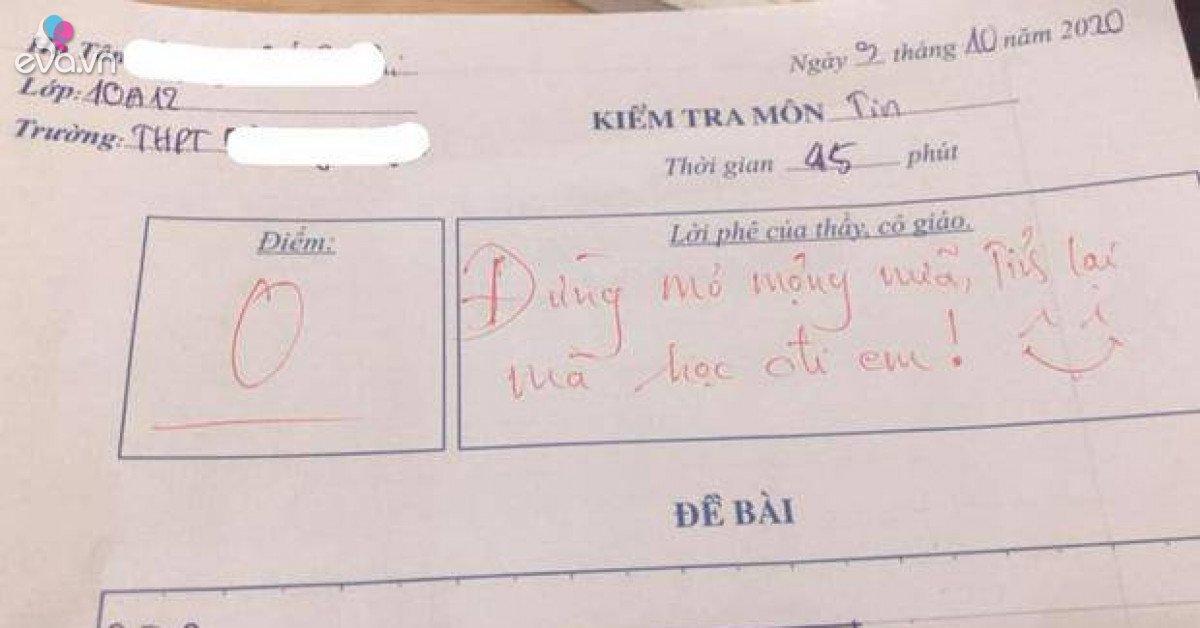 eva.vn
Họ Tên
Lớp: 10A12
Trường: THPT
Ngày 9 tháng 10 năm 2020
KIỂM TRA MÔN Tin
Thời gian 45 phút
Điểm:
0
Lời phê của thầy, cô giáo.
Đừng mơ mộng nữa, Tỉnh lại
mà học đi em!
ĐỀ BÀI